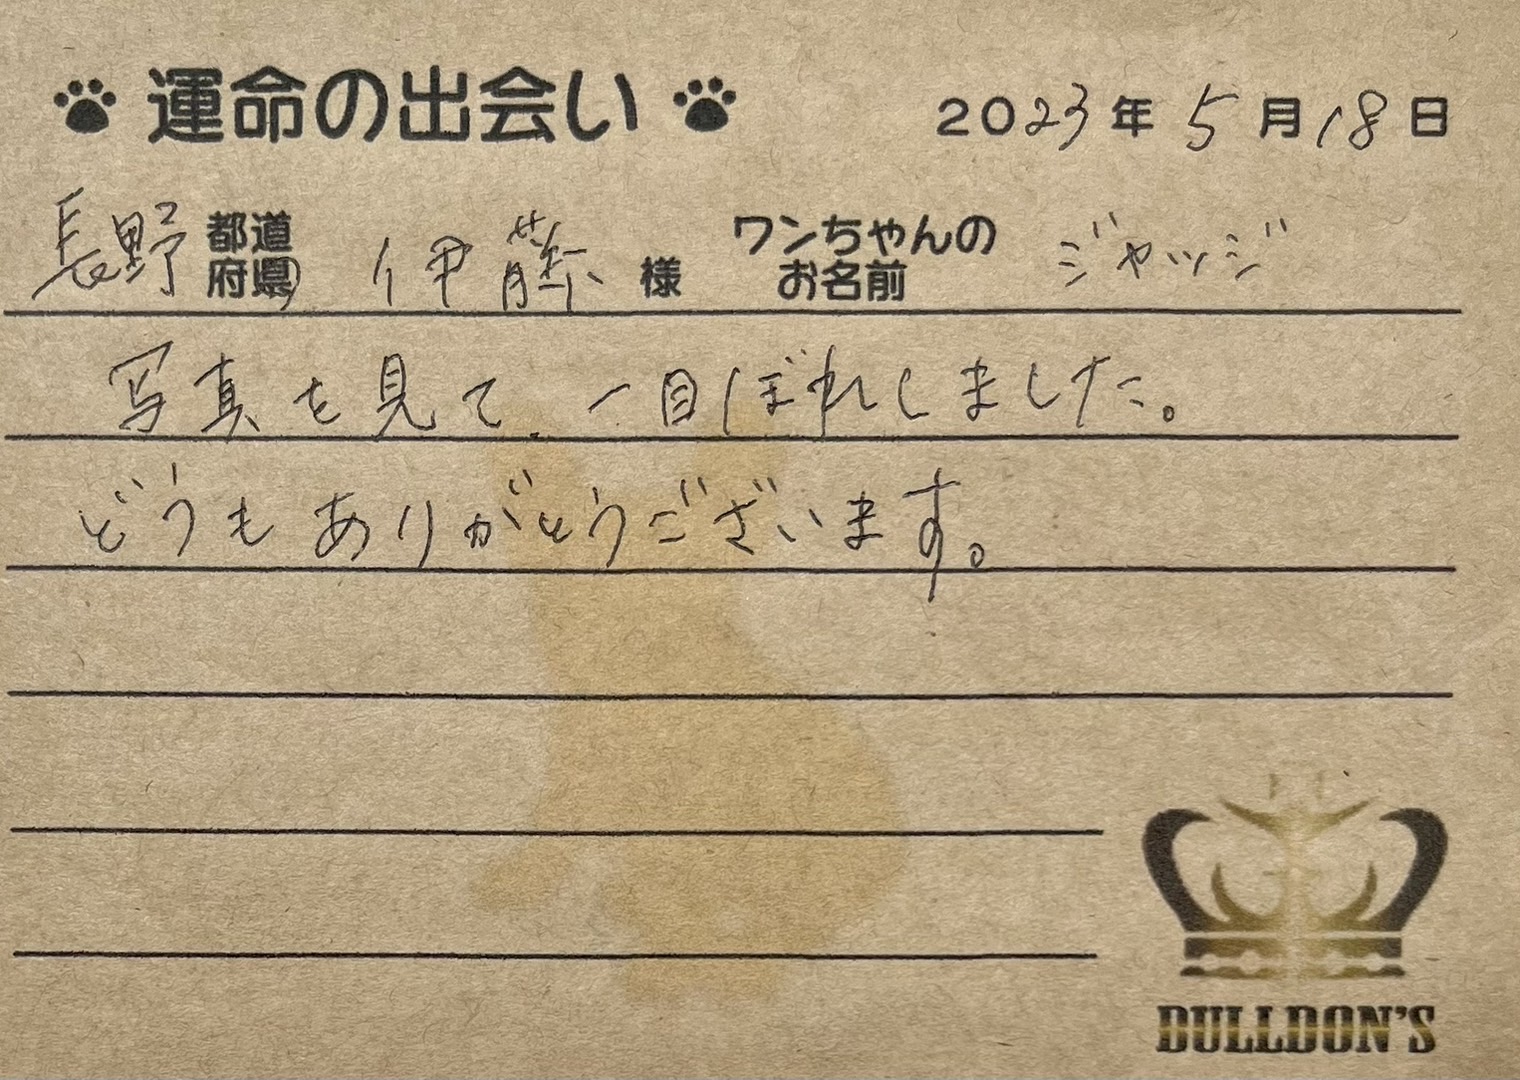 運命の出会い 2023年5月18日
長野 都道府県 伊藤 様 ワンちゃんのお名前 ジャッジ
写真を見て、一目ぼれしました。
どうもありがとうございます。
BULLDON'S